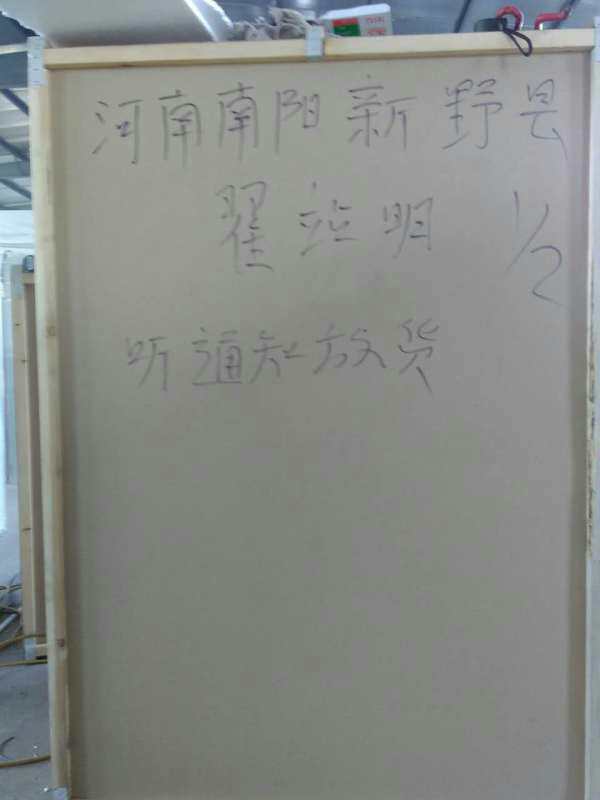 河南南阳新野县
翟立明 1/2
听通知放货